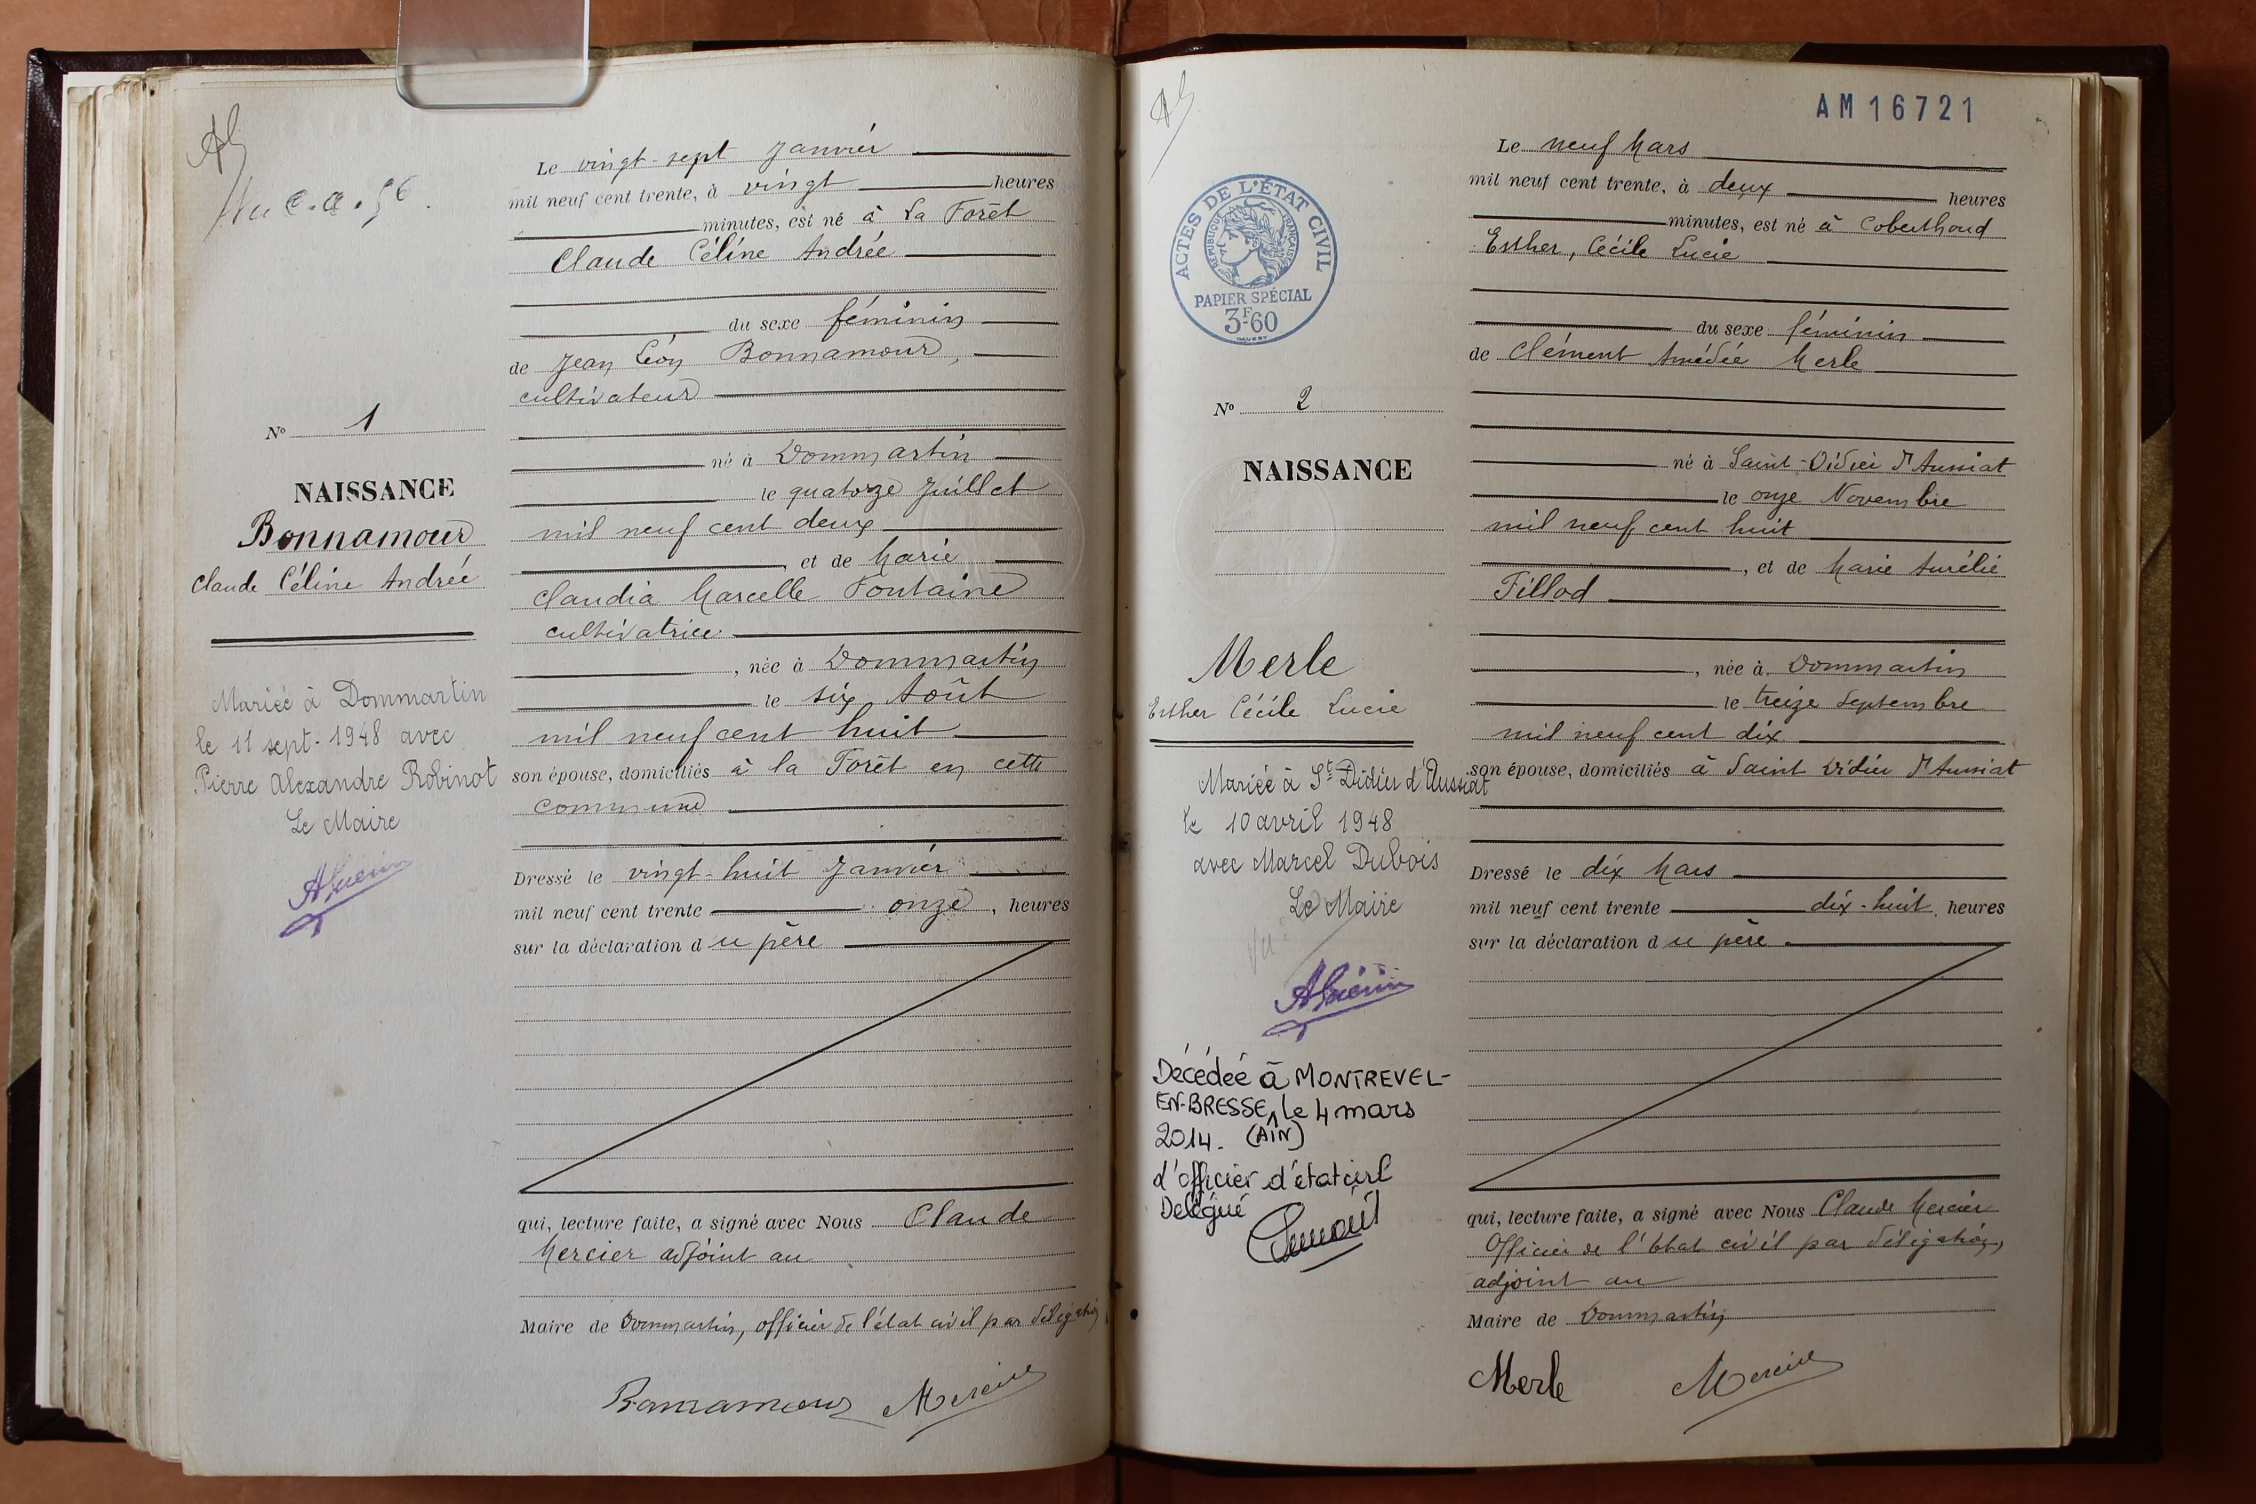 Le vingt-sept Janvier
mil neuf cent trente, à vingt heures
minutes, est né à la Forêt
Claude Céline Andrée
du sexe féminin
de Jean Léon Bonnamour,
cultivateur
Nº 1
né à Dommartin
NAISSANCE
le quatorze Juillet
Bonnamour
mil neuf cent deux
Claude Céline Andrée
, et de Marie
Claudia Marcelle Fontaine
cultivatrice
, née à Dommartin
le six Août
mil neuf cent huit
son épouse, domiciliés à la Forêt en cette
commune
Mariée à Dommartin
le 11 sept. 1948 avec
Pierre Alexandre Robinot
Le Maire
Dressé le vingt-huit Janvier
mil neuf cent trente onze, heures
sur la déclaration du père
qui, lecture faite, a signé avec Nous Claude
Mercier adjoint au
Maire de Dommartin, officier de l'état civil par délégation
Bonnamour Mercier
AM 16721
Le neuf Mars
mil neuf cent trente, à deux heures
minutes, est né à Coberthoud
Esther, Cécile Lucie
ACTES DE L'ÉTAT CIVIL
RÉPUBLIQUE FRANÇAISE
PAPIER SPÉCIAL
3F.60
du sexe féminin
de Clément Amédée Merle
Nº 2
NAISSANCE
né à Saint-Didier d'Aussiat
le onze Novembre
mil neuf cent huit
, et de Marie Aurélie
Fillod
Merle
Esther Cécile Lucie
, née à Dommartin
le treize Septembre
mil neuf cent dix
son épouse, domiciliés à Saint Didier d'Aussiat
Mariée à St Didier d'Aussiat
le 10 avril 1948
avec Marcel Dubois
Le Maire
Dressé le dix Mars
mil neuf cent trente dix-huit, heures
sur la déclaration du père
Décédée à MONTREVEL-
EN-BRESSE le 4 mars
2014. (AIN)
L'officier d'état civil
Délégué
qui, lecture faite, a signé avec Nous Claude Mercier
Officier de l'état civil par délégation,
adjoint au
Maire de Dommartin
Merle Mercier